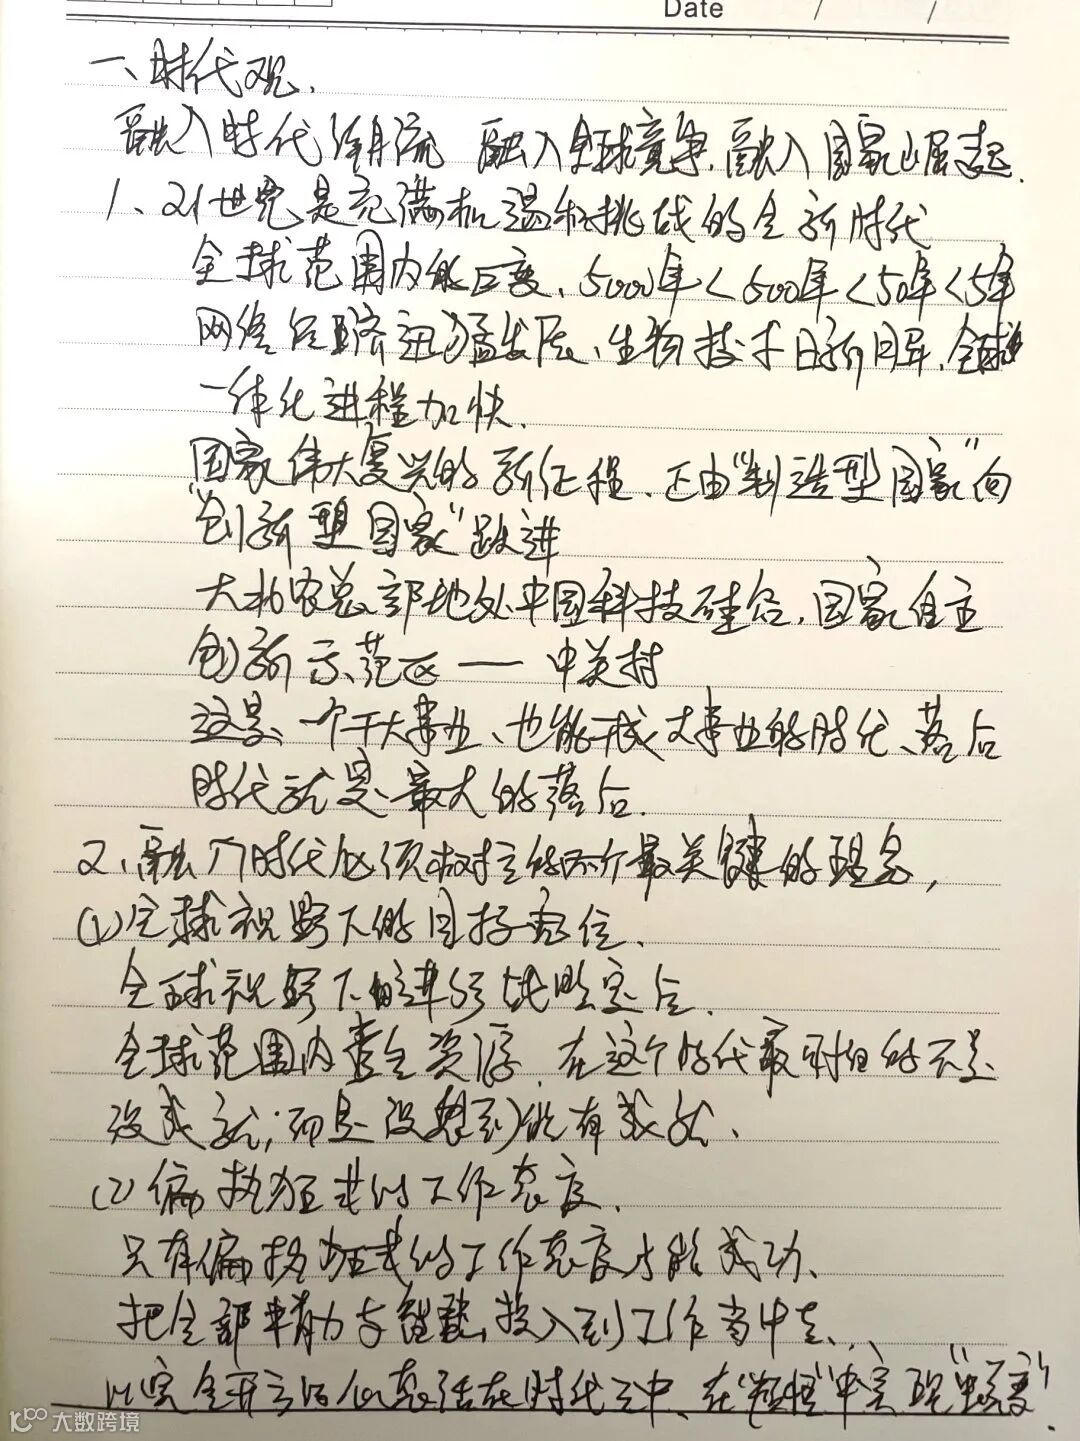 Date / /
一、时代观.
融入时代洪流 融入全球竞争,融入国家崛起.
1、21世纪是充满机遇和挑战的全新时代
全球范围内的巨变、5000年<500年<50年<5年
网络经济迅猛发展、生物技术日新月异,全球
一体化进程加快.
国家伟大复兴的新征程、正由"制造型国家"向
"创新型国家"跃进
大北农总部地处中国科技硅谷,国家自主
创新示范区——中关村
这是一个干大事业、也能成大事业的时代、落后
时代就是最大的落后.
2、融入时代必须树立的两个最关键的理念,
(1)全球视野下的目标定位.
全球视野下的进行战略定位.
全球范围内整合资源,在这个时代最可怕的不是
没成就;而是没想到能有成就、
(2)偏执狂式的工作态度.
只有偏执狂式的工作态度才能成功、
把全部精力与智慧投入到工作当中去...
以完全开放的心态活在时代之中、在""中实现""
大数跨境